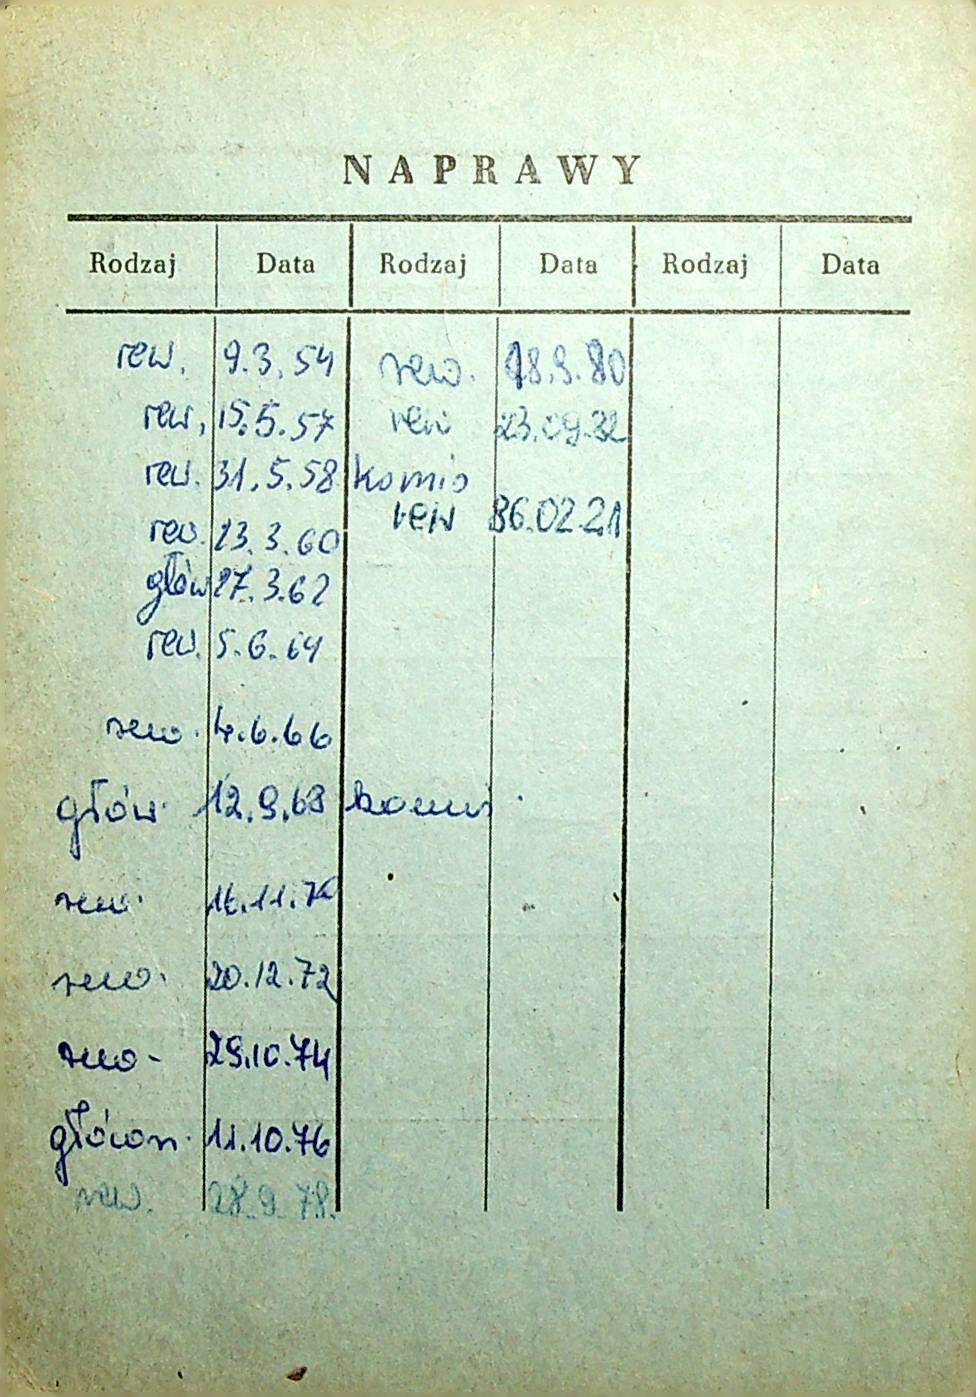 NAPRAWY
Rodzaj Data Rodzaj Data Rodzaj Data
rew. 9.3.54 rew. 18.9.80
rew, 15.5.57 rew 23.09.82
rew. 31.5.58 komis
rew 86.02.21
rew. 23.3.60
głów 27.3.62
rew. 5.6.64
rew. 4.6.66
głów. 12.9.68 komis
rew.
rew. 20.12.72
rew- 29.10.74
główn. 11.10.76
rew. 28.9.78.